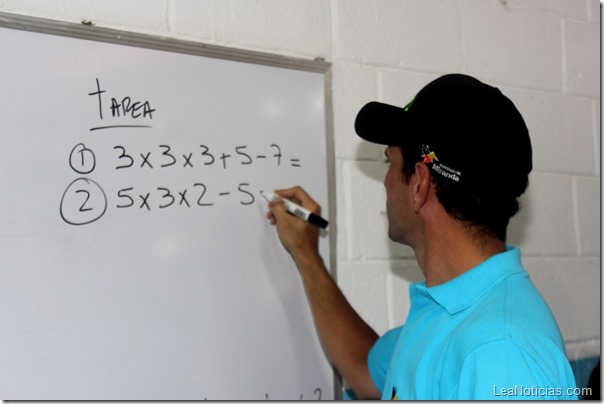 tAREA
① 3x3x3+5-7=
② 5x3x2-5
Miranda
LeaNoticias.com